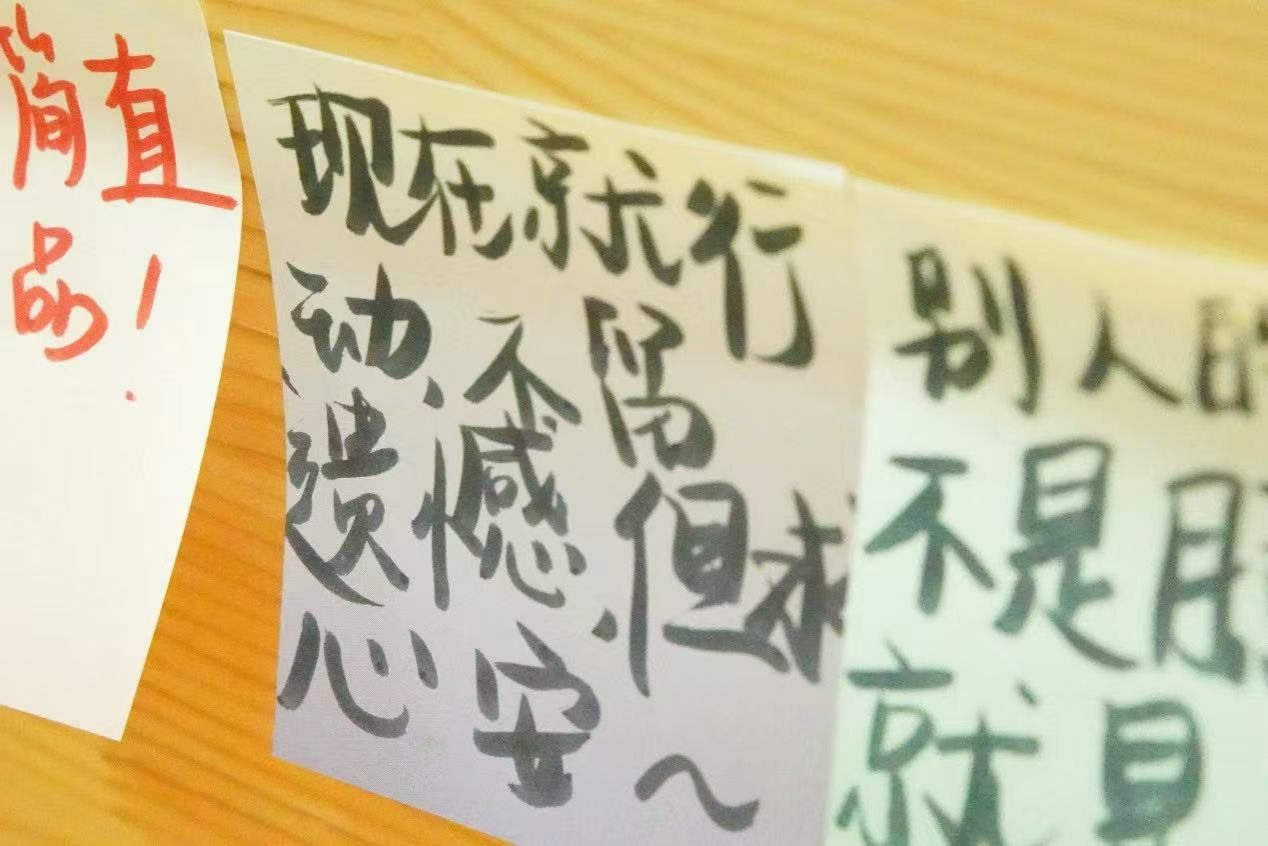 简直
!
现在就行
动,不留
遗憾.但求
心安~
别人的
不是
就